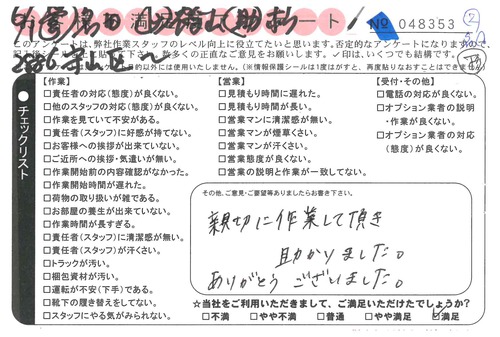 満 ート № 048353 ②
このアンケートは、弊社作業スタッフのレベル向上に役立てたいと思います。否定的なアンケートになりますので、
正直なご意見をお願いします。✓印は、いくつでも結構です。
目的以外には使用いたしません。(※情報保護シールは1度はがすと、再度貼りなおすことはできません)
チェックリスト
【作業】
□責任者の対応(態度)が良くない。
□他のスタッフの対応(態度)が良くない。
□作業を見ていて不安がある。
□責任者(スタッフ)に好感が持てない。
□お客様への挨拶が出来ていない。
□ご近所への挨拶・気遣いが無い。
□作業開始前の内容確認がなかった。
□作業開始時間が遅れた。
□荷物の取り扱いが雑である。
□お部屋の養生が出来ていない。
□作業時間が長すぎる。
□責任者(スタッフ)に清潔感が無い。
□責任者(スタッフ)が汗くさい。
□トラックが汚い。
□梱包資材が汚い。
□運転が不安(下手)である。
□靴下の履き替えをしてない。
□スタッフにやる気がみられない。
【営業】
□見積もり時間に遅れた。
□見積もり時間が長い。
□営業マンに清潔感が無い。
□営業マンが煙草くさい。
□営業マンが汗くさい。
□営業態度が良くない。
□営業の説明と作業が一致してない。
【受付・その他】
□電話の対応が良くない。
□オプション業者の説明
・作業が良くない。
□オプション業者の対応
(態度)が良くない。
その他、ご意見・ご要望等ありましたらお書き下さい。
親切に作業して頂き
助かりました。
ありがとうございました。
☆当社をご利用いただきまして、ご満足いただけたでしょうか?
□不満 □やや不満 □普通 □やや満足 ☑満足